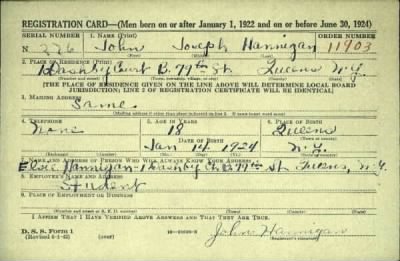 REGISTRATION CARD—(Men born on or after January 1, 1922 and on or before June 30, 1924)
SERIAL NUMBER 1. NAME (Print) ORDER NUMBER
N 226 John Joseph Hannigan 11903
2. PLACE OF RESIDENCE (Print)
Court B. 77th St. Queens N.Y.
[THE PLACE OF RESIDENCE GIVEN ON THE LINE ABOVE WILL DETERMINE LOCAL BOARD
JURISDICTION; LINE 2 OF REGISTRATION CERTIFICATE WILL BE IDENTICAL]
3. MAILING ADDRESS
Same
4. TELEPHONE 5. AGE IN YEARS 6. PLACE OF BIRTH
None 18 Queens
DATE OF BIRTH
Jan 14 1924 N.Y.
7. NAME AND ADDRESS OF PERSON WHO WILL ALWAYS KNOW YOUR ADDRESS
Hannigan B. 77th St. Queens, N.Y.
8. EMPLOYER'S NAME AND ADDRESS
Student
9. PLACE OF EMPLOYMENT OR BUSINESS
I AFFIRM THAT I HAVE VERIFIED ABOVE ANSWERS AND THAT THEY ARE TRUE.
D. S. S. Form 1
John Hannigan